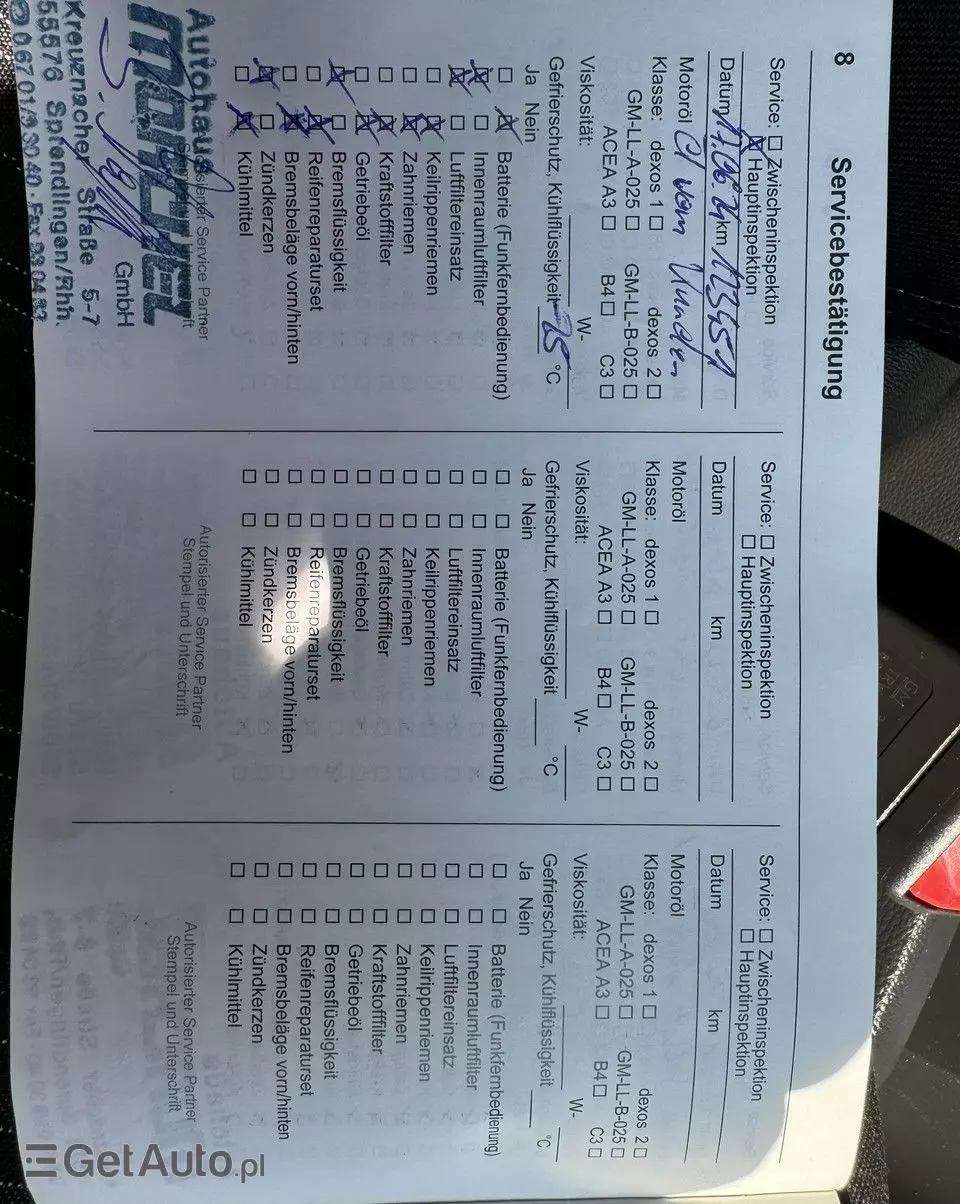 8 Servicebestätigung
Service: ☐ Zwischeninspektion
☒ Hauptinspektion
Datum km 123451
Motoröl vom Kunden
Klasse: dexos 1 ☐ dexos 2 ☐
GM-LL-A-025 ☐ GM-LL-B-025 ☐
ACEA A3 ☐ B4 ☐ C3 ☐
Viskosität: W-
Gefrierschutz, Kühlflüssigkeit -25 °C
Ja Nein
☐ ☒ Batterie (Funkfernbedienung)
☒ ☐ Innenraumluftfilter
☒ ☐ Luftfiltereinsatz
☐ ☒ Keilrippenriemen
☐ ☒ Zahnriemen
☐ ☒ Kraftstofffilter
☐ ☒ Getriebeöl
☒ ☐ Bremsflüssigkeit
☐ ☒ Reifenreparaturset
☐ ☒ Bremsbeläge vorn/hinten
☒ ☐ Zündkerzen
☐ ☒ Kühlmittel
Service Partner
Autohaus
GmbH
Kreuznacher Straße 5-7
55576 Sprendlingen/Rhh.
Service: ☐ Zwischeninspektion
☐ Hauptinspektion
Datum km
Motoröl
Klasse: dexos 1 ☐ dexos 2 ☐
GM-LL-A-025 ☐ GM-LL-B-025 ☐
ACEA A3 ☐ B4 ☐ C3 ☐
Viskosität: W-
Gefrierschutz, Kühlflüssigkeit °C
Ja Nein
☐ ☐ Batterie (Funkfernbedienung)
☐ ☐ Innenraumluftfilter
☐ ☐ Luftfiltereinsatz
☐ ☐ Keilrippenriemen
☐ ☐ Zahnriemen
☐ ☐ Kraftstofffilter
☐ ☐ Getriebeöl
☐ ☐ Bremsflüssigkeit
☐ ☐ Reifenreparaturset
☐ ☐ Bremsbeläge vorn/hinten
☐ ☐ Zündkerzen
☐ ☐ Kühlmittel
Autorisierter Service Partner
Stempel und Unterschrift
Service: ☐ Zwischeninspektion
☐ Hauptinspektion
Datum km
Motoröl
Klasse: dexos 1 ☐ dexos 2 ☐
GM-LL-A-025 ☐ GM-LL-B-025 ☐
ACEA A3 ☐ B4 ☐ C3 ☐
Viskosität: W-
Gefrierschutz, Kühlflüssigkeit °C
Ja Nein
☐ ☐ Batterie (Funkfernbedienung)
☐ ☐ Innenraumluftfilter
☐ ☐ Luftfiltereinsatz
☐ ☐ Keilrippenriemen
☐ ☐ Zahnriemen
☐ ☐ Kraftstofffilter
☐ ☐ Getriebeöl
☐ ☐ Bremsflüssigkeit
☐ ☐ Reifenreparaturset
☐ ☐ Bremsbeläge vorn/hinten
☐ ☐ Zündkerzen
☐ ☐ Kühlmittel
Autorisierter Service Partner
Stempel und Unterschrift
GetAuto.pl